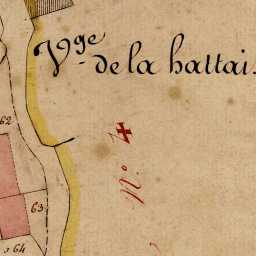 Vge
de la hattai
62
N° 4
63
264